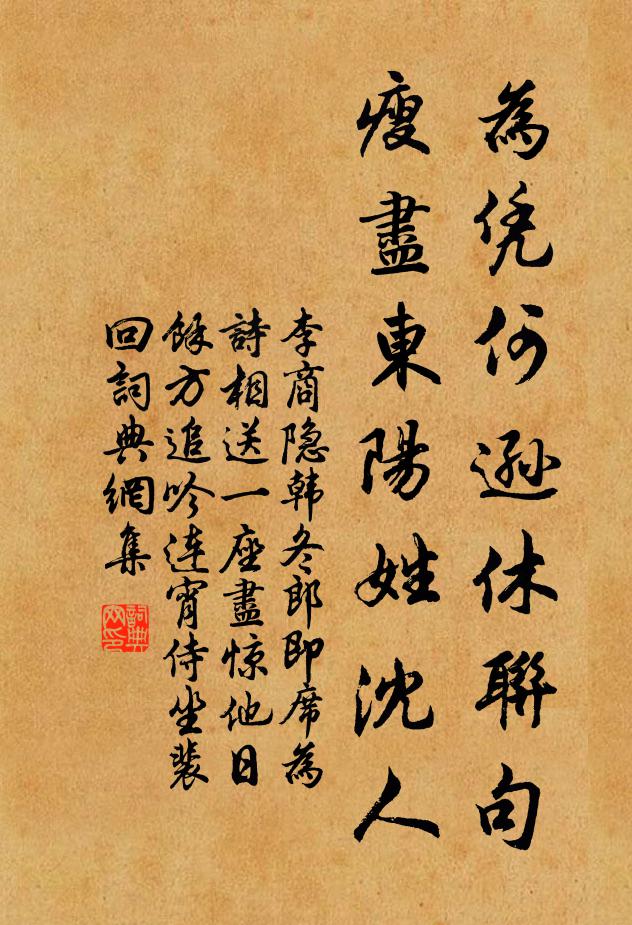 為凭何遜休聯句
瘦盡東陽姓沈人
李商隐韩冬郎即席為
詩相送一座盡惊他日
餘方追吟連宵侍坐裴
回詞典網集
詞典
网印